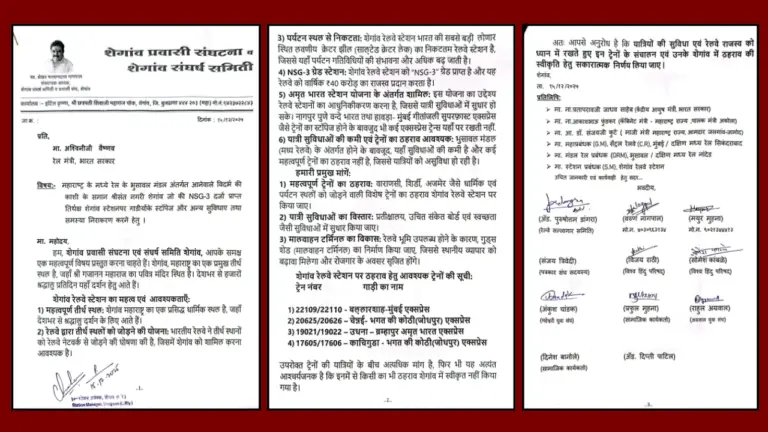 शेगांव प्रवासी संघटना व
शेगांव संघर्ष समिती
जा.क्र.
दिनांक : १५/१२/२०२५
प्रति,
मा. अश्विनीजी वैष्णव
रेल मंत्री, भारत सरकार
विषय:- महाराष्ट्र के मध्ये रेल के भुसावल मंडल अंतर्गत आनेवाले विदर्भ की
काशी के समान श्रीसंत नगरी शेगांव जो की NSG-3 दर्जा प्राप्त
तिर्थक्षेत्र शेगांव स्टेशनपर गाड़ीयोंके स्टॉपिज और अन्य सुविधाए तथा
समस्या निराकरण करने हेतु ।
मा. महोदय,
हम, शेगांव प्रवासी संघटना एवं संघर्ष समिति शेगांव, आपके समक्ष
एक महत्वपूर्ण विषय प्रस्तुत करना चाहते हैं। शेगांव, महाराष्ट्र का एक प्रमुख तीर्थ
स्थल है, जहाँ श्री गजानन महाराज का पवित्र मंदिर स्थित है। देशभर से हजारों
श्रद्धालु प्रतिदिन यहाँ दर्शन हेतु आते हैं।
शेगांव रेल्वे स्टेशन का महत्व एवं आवश्यकताएँ:
1) महत्वपूर्ण तीर्थ स्थल: शेगांव महाराष्ट्र का एक प्रसिद्ध धार्मिक स्थल है, जहाँ
देशभर से श्रद्धालु दर्शन के लिए आते हैं।
2) रेल्वे द्वारा तीर्थ स्थलों को जोड़ने की योजना: भारतीय रेलवे ने तीर्थ स्थानों
को रेलवे नेटवर्क से जोड़ने की घोषणा की है, जिसमें शेगांव को शामिल करना
आवश्यक है।
-1-
3) पर्यटन स्थल से निकटता: शेगांव रेलवे स्टेशन भारत की सबसे बड़ी लोणार
स्थित लवणीय क्रेटर झील (साल्टेड क्रेटर लेक) का निकटतम रेलवे स्टेशन है,
जिससे यहाँ पर्यटन गतिविधियों की संभावना और अधिक बढ़ जाती है।
4) NSG-3 ग्रेड स्टेशन: शेगांव रेलवे स्टेशन को "NSG-3" ग्रेड प्राप्त है और यह
रेलवे को वार्षिक ₹40 करोड़ का राजस्व प्रदान करता है।
5) अमृत भारत स्टेशन योजना के अंतर्गत शामिल: इस योजना का उद्देश्य
रेलवे स्टेशनों का आधुनिकीकरण करना है, जिससे यात्री सुविधाओं में सुधार हो
सके। नागपुर पुणे वन्दे भारत तथा हावड़ा- मुंबई गीतांजली सुपरफ़ास्ट एक्सप्रेस
जैसे ट्रेनों का स्टॉपिज होने के बावजूद भी कई एक्सप्रेस ट्रेन्स यहाँ पर रखती नहीं.
6) यात्री सुविधाओं की कमी एवं ट्रेनों का ठहराव आवश्यक: भुसावल मंडल
(मध्य रेलवे) के अंतर्गत होने के बावजूद, यहाँ सुविधाओं की कमी है और कई
महत्वपूर्ण ट्रेनों का ठहराव नहीं है, जिससे यात्रियों को असुविधा हो रही है।
हमारी प्रमुख मांगें:
1) महत्वपूर्ण ट्रेनों का ठहराव: वाराणसी, दिल्ली, अजमेर जैसे धार्मिक एवं
पर्यटन स्थलों को जोड़ने वाली विशेष ट्रेनों का ठहराव शेगांव रेलवे स्टेशन पर
किया जाए।
2) यात्री सुविधाओं का विस्तार: प्रतीक्षालय, उचित संकेत बोर्ड एवं स्वच्छता
जैसी सुविधाओं में सुधार किया जाए।
3) मालवाहन टर्मिनल का विकास: रेलवे भूमि उपलब्ध होने के कारण, गुड्स
शेड (मालवाहन टर्मिनल) का निर्माण किया जाए, जिससे स्थानीय व्यापार को
बढ़ावा मिलेगा और रोजगार के अवसर सृजित होंगे।
शेगांव रेलवे स्टेशन पर ठहराव हेतु आवश्यक ट्रेनों की सूची:
ट्रेन नंबर गाड़ी का नाम
1) 22109/22110 - बल्लारशाह-मुंबई एक्सप्रेस
2) 20625/20626 – चेन्नई- भगत की कोठी(जोधपुर) एक्सप्रेस
3) 19021/19022 – उधना – ब्रम्हापुर अमृत भारत एक्सप्रेस
4) 17605/17606 – काचिगुडा - भगत की कोठी(जोधपुर) एक्सप्रेस
उपरोक्त ट्रेनों की यात्रियों के बीच अत्यधिक मांग है, फिर भी यह अत्यंत
आश्चर्यजनक है कि इनमें से किसी का भी ठहराव शेगांव में स्वीकृत नहीं किया
गया है।
-2-
अतः आपसे अनुरोध है कि यात्रियों की सुविधा एवं रेलवे राजस्व को
ध्यान में रखते हुए इन ट्रेनों के संचालन एवं उनके शेगांव में ठहराव की
स्वीकृति हेतु सकारात्मक निर्णय लिया जाए।
शेगांव,
ता. १५/१२/२०२५
प्रतिलिपि:
मा. ना.प्रतापरावजी जाधव साहेब (केंद्रीय आयुष मंत्री, भारत सरकार)
मा. आ. डॉ. संजयजी कुटे ( माजी मंत्री महाराष्ट्र राज्य, आमदार जलगाव-जामोद)
मा. महाप्रबंधक (G.M), सेंट्रल रेल्वे (C.R), मुंबई / दक्षिण मध्य रेल सिकंदराबाद
मा. मंडल रेल प्रबंधक (DRM), भुसावल / दक्षिण मध्य रेल नांदेड
मा. स्टेशन प्रबंधक (S.M), शेगांव रेल्वे स्टेशन
उचित जानकारी एवं कार्यवाही हेतु सादर..
भवदीय,
(अॅड. पुरुषोत्तम डांगरा) (वरुण नागपाल) (मयुर मुहाना)
(संजय त्रिवेदी) (विजय राठी) (सोमेश कांबळे)
(विश्व हिंदु परिषद) (विश्व हिंदु परिषद)
(अंकुश चांडक) (प्रफुल मुहाना) (राहुल अग्रवाल)
(सामाजिक कार्यकर्ता)
(दिनेश बानोले) (अॅड. दिप्ती पाटिल)
(सामाजिक कार्यकर्ता)
-3-